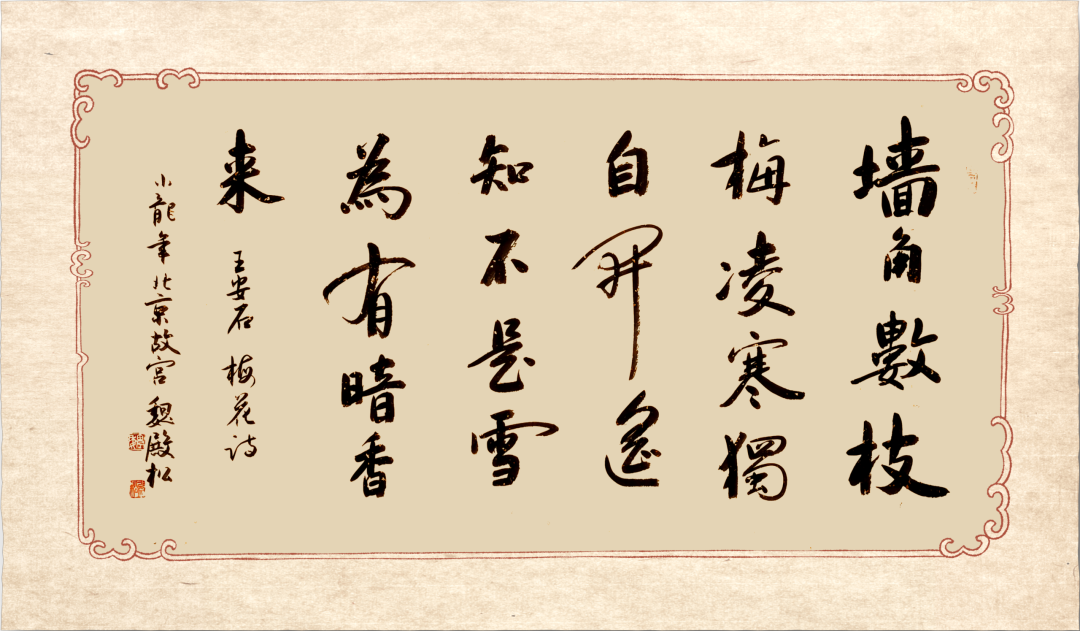 墙角數枝
梅凌寒獨
自開遙
知不是雪
為有暗香
来 王安石 梅花诗
小龍年北京故宫 魏殿松